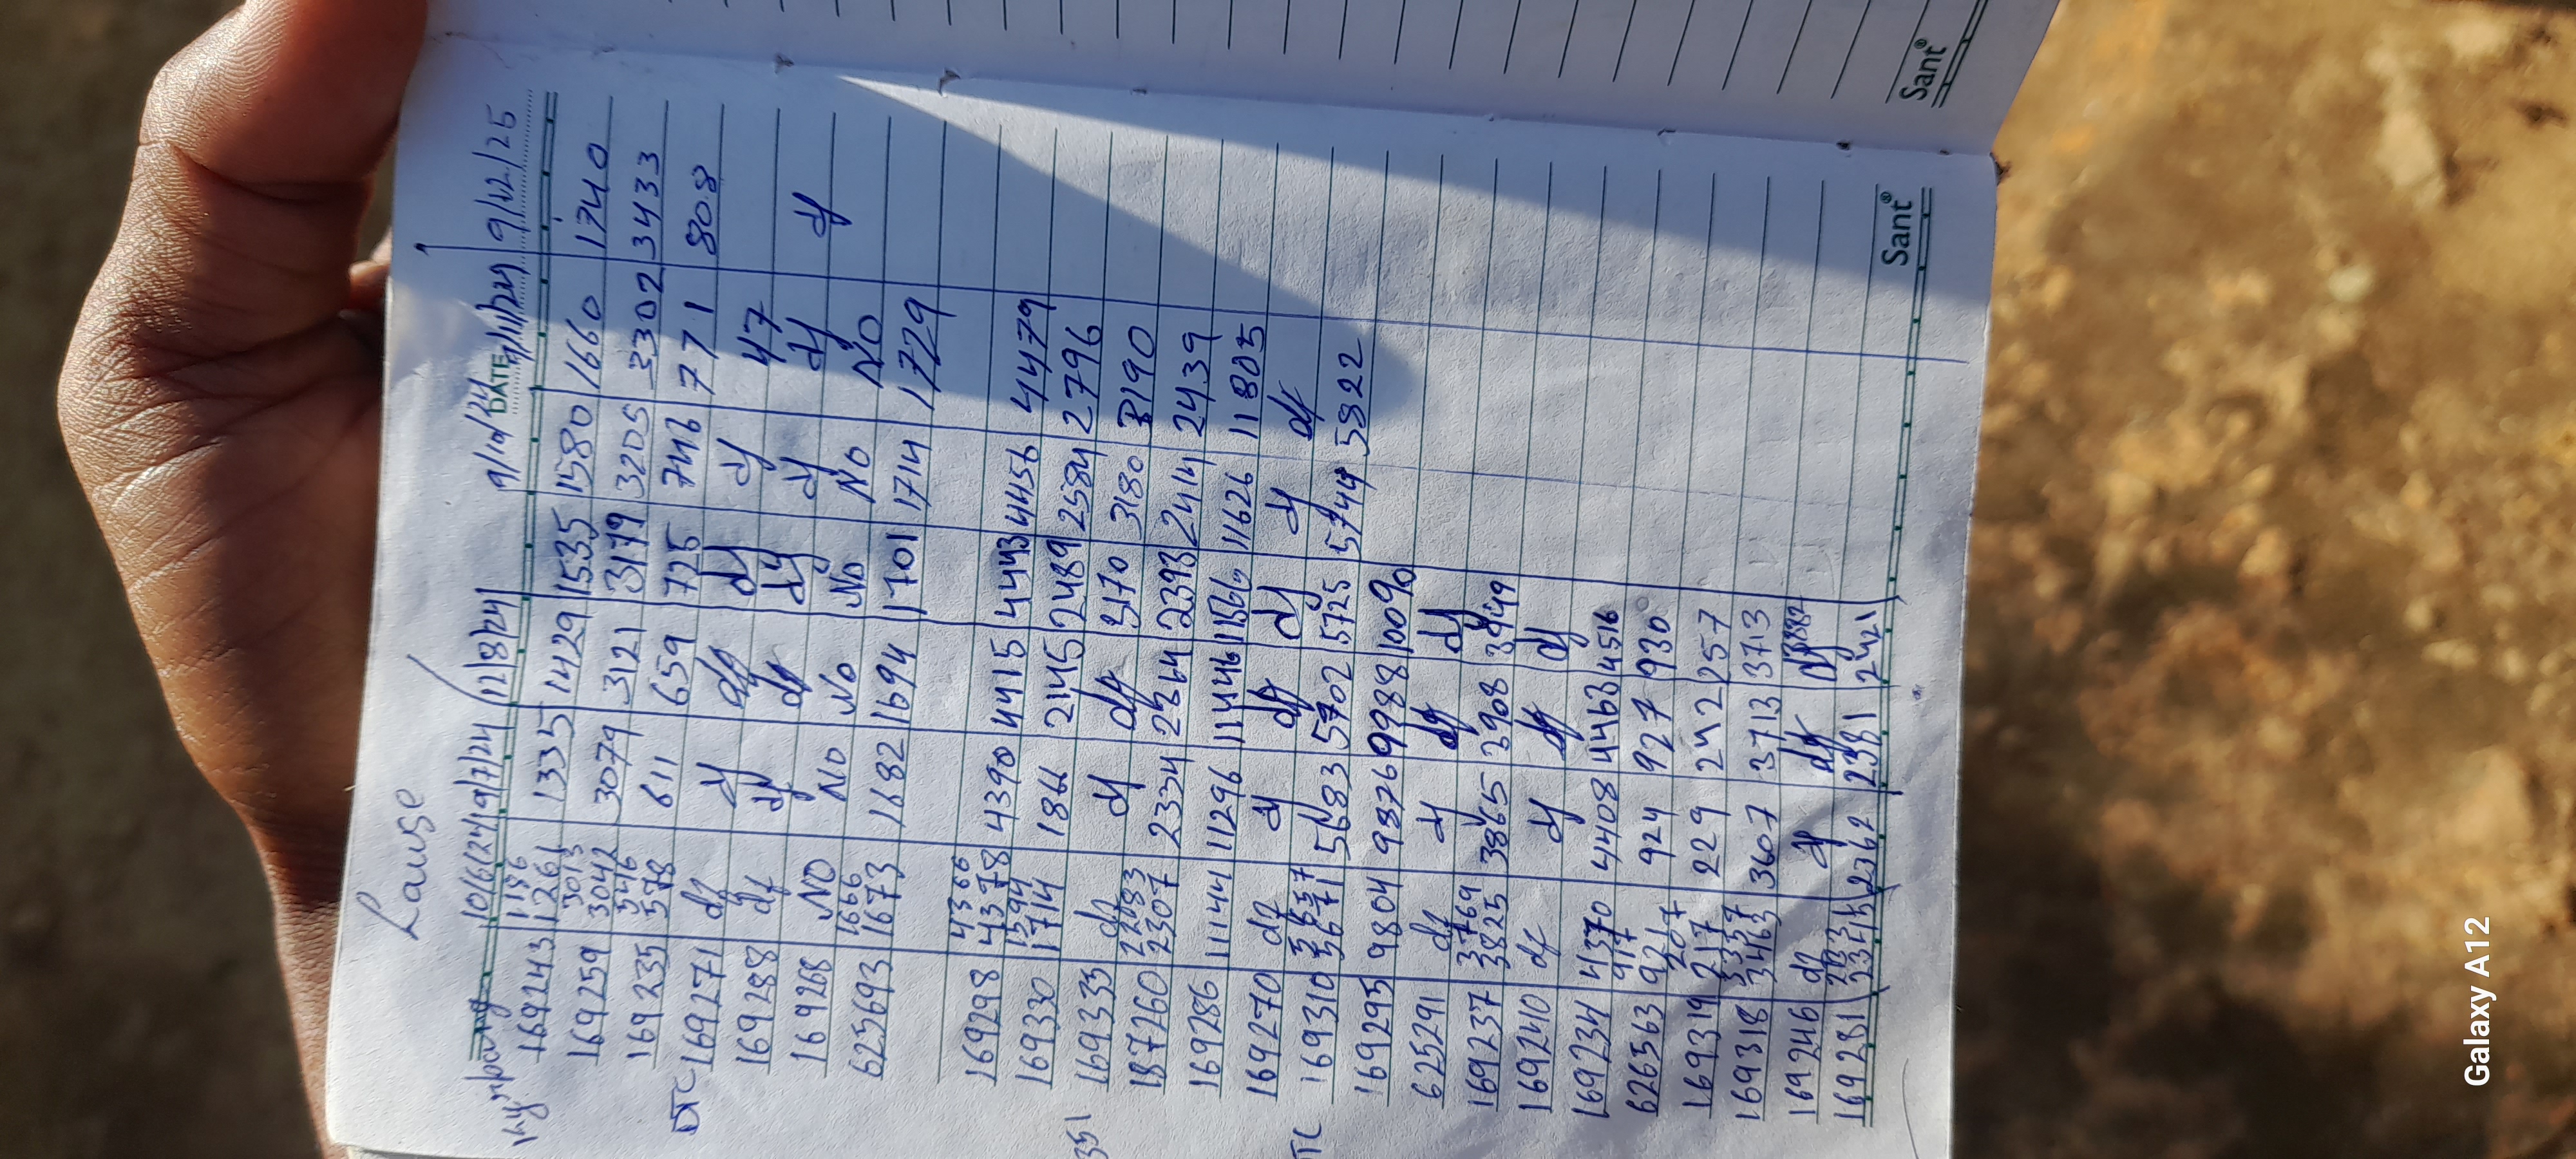 Lause
10/6/24 9/7/24 12/8/24 9/10/24 DATE 9/11/24 9/12/25
1156
169243 1261 1335 1429 1535 1580 1660 1740
3013
169259 3042 3079 3121 3179 3205 3302 3433
546
169235 578 611 659 725 746 771 808
DTC 169271 df df df df df 47
169288 df df df df df df df
169268 NO NO NO NO NO NO
1666
625693 1673 1682 1694 1701 1714 1729
4366
169298 4378 4390 4415 4443 4456 4479
1594
169330 1714 1866 2145 2489 2584 2796
169333 df df df 3170 3180 3190
2283
187260 2307 2334 2364 2393 2414 2439
169286 11144 11296 11446 11566 11626 11805
169270 df df df df df df
169310 5671 5683 5702 5725 5744 5822
169295 9804 9876 9988 10090
625291 df df df df
3769
169237 3825 3865 3908 3949
169240 df df df df
169234 4370 4408 4463 4516
917
626563 921 924 927 930
207
169319 217 229 242 257
3337
169318 3463 3607 3713 3713
169246 df df df
169281 2345 2362 2381 2421
351
TC
Sant®
Sant®
Galaxy A12